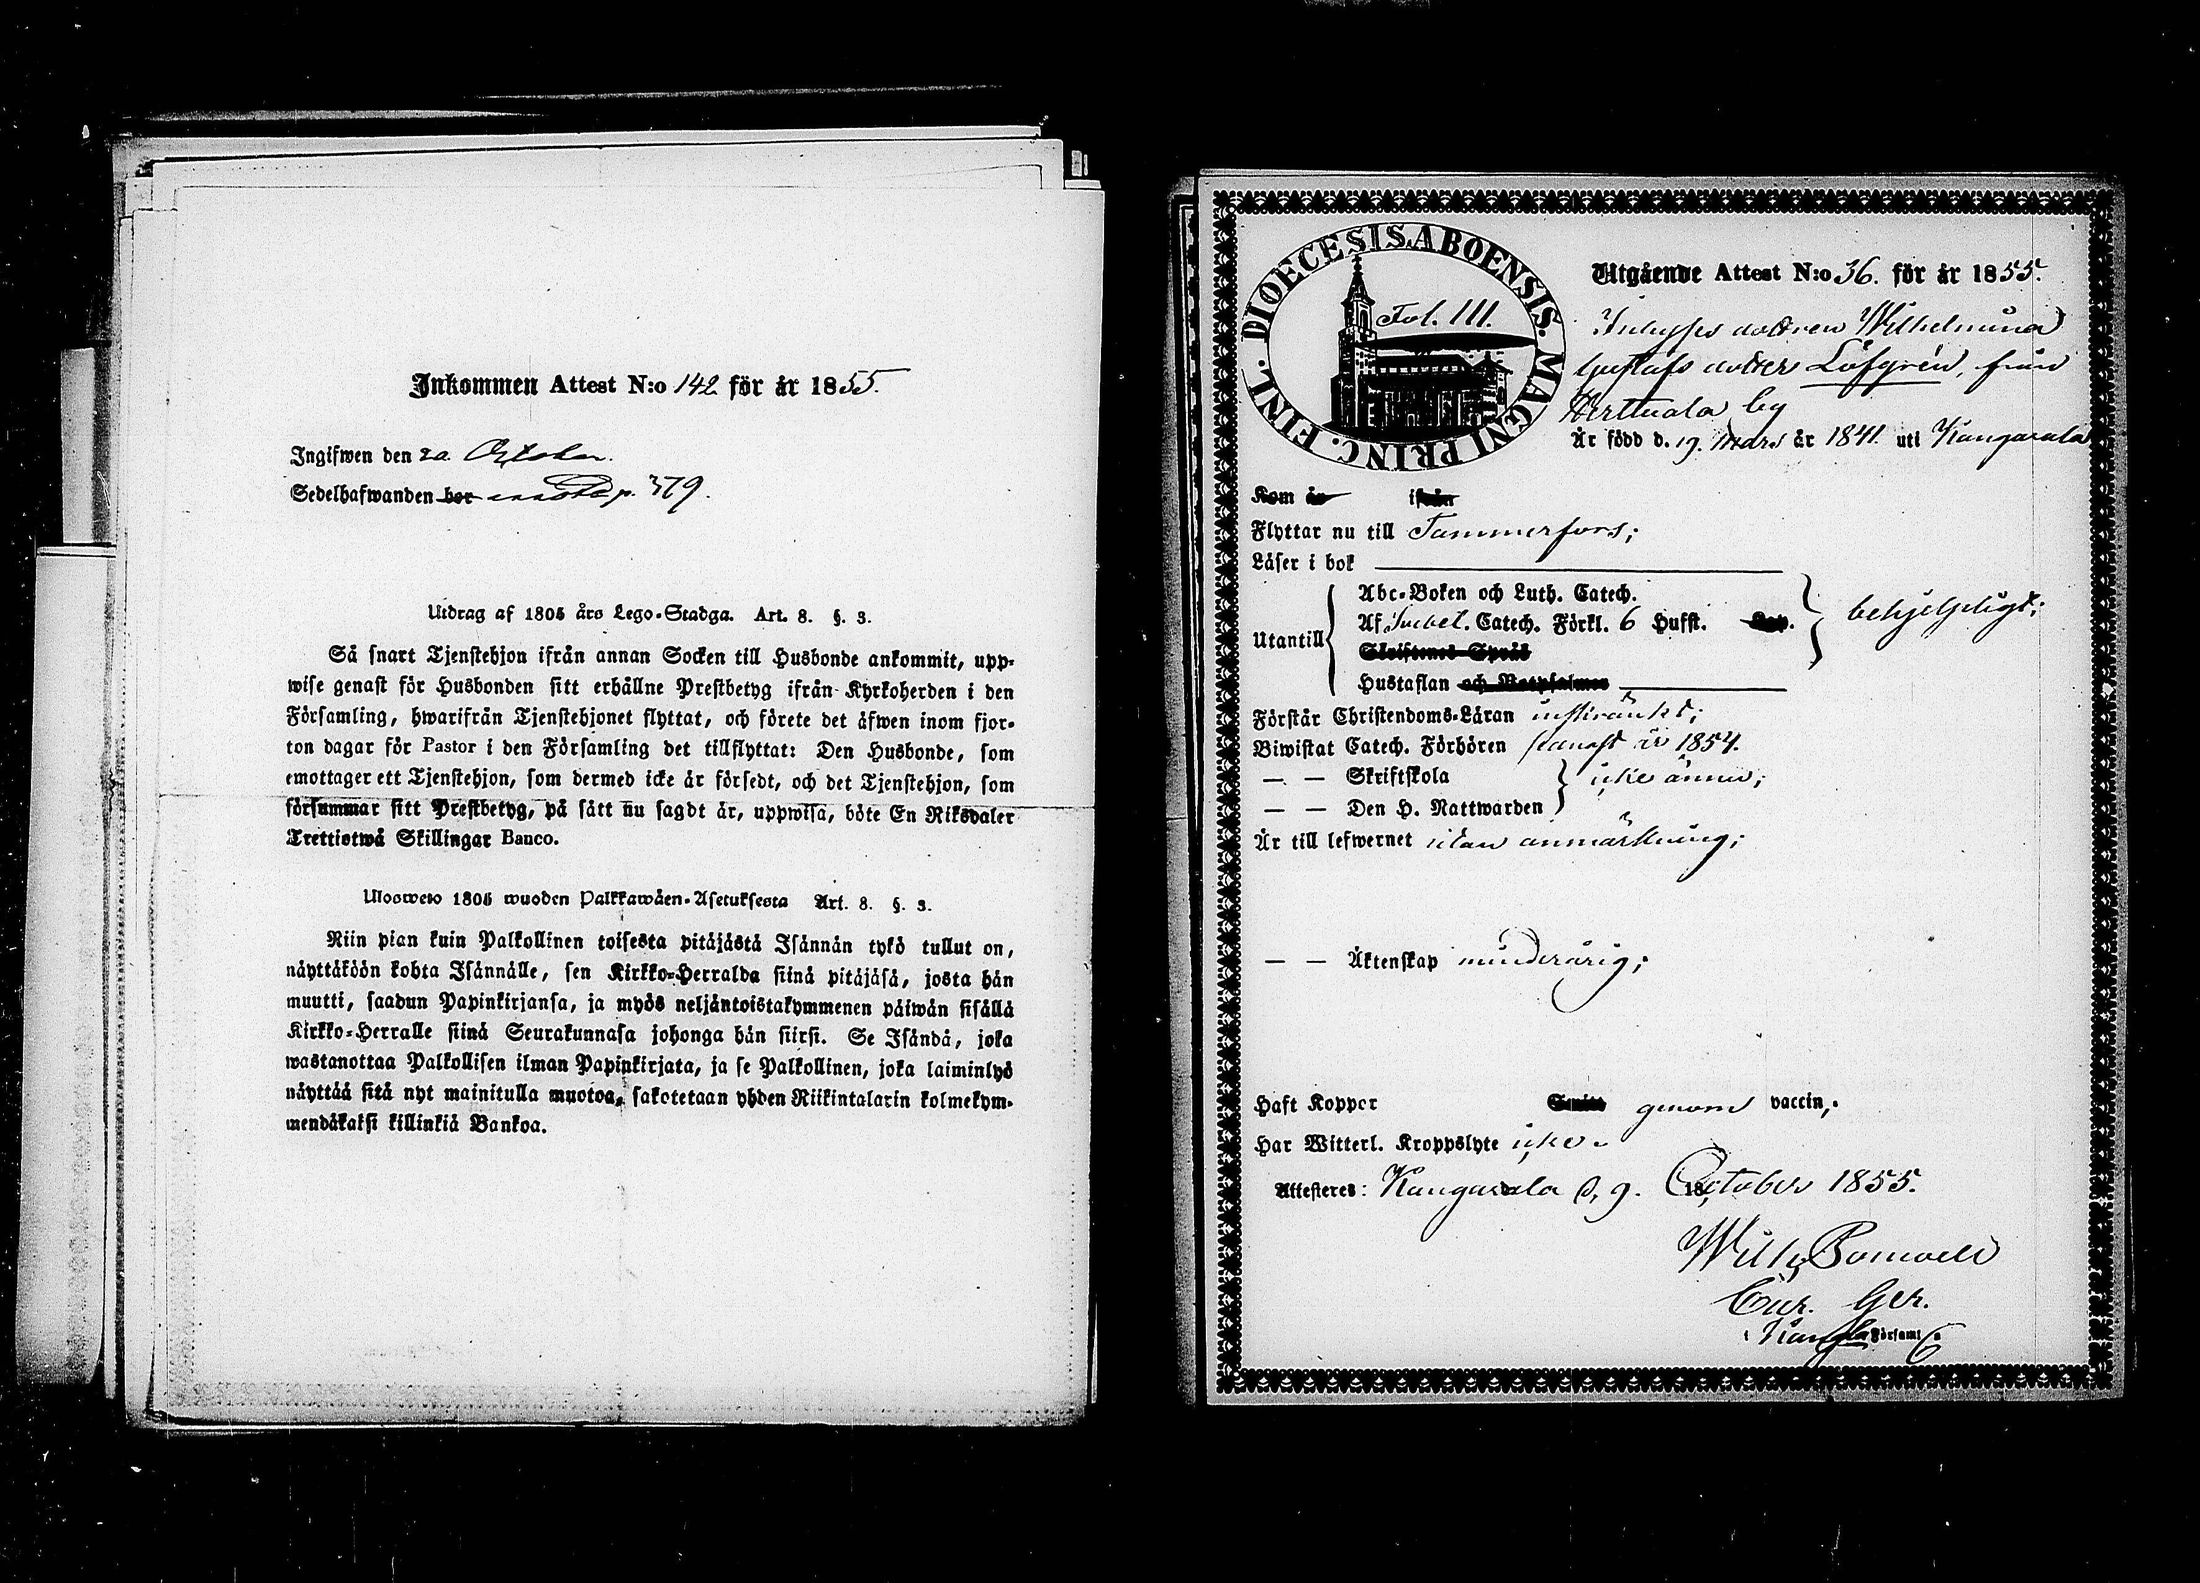 Inkommen Attest N:o 142 för år 1855.
Ingifwen den 20. October.
Sedelhafwanden bor p. 379.
Utdrag af 1805 års Lego-Stadga. Art. 8. §. 3.
Så snart Tjenstehjon ifrån annan Socken till Husbonde ankommit, upp-
wise genast för Husbonden sitt erhållne Prestbetyg ifrån Kyrkoherden i den
Församling, hwarifrån Tjenstehjonet flyttat, och förete det äfwen inom fjor-
ton dagar för Pastor i den Församling det tillflyttat: Den Husbonde, som
emottager ett Tjenstehjon, som dermed icke är försedt, och det Tjenstehjon, som
försummar sitt Prestbetyg, på sätt nu sagdt är, uppwisa, böte En Riksdaler
Trettiotwå Skillingar Banco.
Ulosweto 1805 wuoden Palkkawäen-Asetuksesta Art. 8. §. 3.
Niin pian kuin Palkollinen toisesta pitäjästä Isännän tykö tullut on,
näyttäköön kohta Isännälle, sen Kirkko-Herralda siinä pitäjäsä, josta hän
muutti, saadun Papinkirjansa, ja myös neljäntoistakymmenen päiwän sisällä
Kirkko-Herralle siinä Seurakunnasa johonga hän siirsi. Se Isändä, joka
wastanottaa Palkollisen ilman Papinkirjata, ja se Palkollinen, joka laiminlyö
näyttää sitä nyt mainitulla muotoa, sakotetaan yhden Riikintalarin kolmekym-
mendäkaksi killinkiä Bankoa.
DIOECESIS ABOENSIS. MAGNI PRINC. FINL.
Fol. 111.
Utgående Attest N:o 36. för år 1855.
Inhyses dottren Wilhelmina
Gustafs dotter Löfgrén, från
Herttuala by
Är född d. 19. Mars år 1841. uti Kangasala
Kom år ifrån
Flyttar nu till Tammerfors;
Läser i bok
Utantill
Abc-Boken och Luth. Catech.
Af Svebel. Catech. Förkl. 6 Hufst.
Skriftenes Språk
Hustaflan och Botpsalmer
behjelpligt;
Förstår Christendoms-Läran inskränkt;
Biwistat Catech. Förhören senast år 1854.
— — Skriftskola
— — Den H. Nattwarden
icke ännu;
Är till lefwernet utan anmärkning;
— — Äktenskap minderårig;
Haft Koppor genom vaccin,
Har Witterl. Kroppslyte icke.
Attesteres: Kangasala d. 9. October 1855.
Wilh.
Cur. Ger.
i Församl.